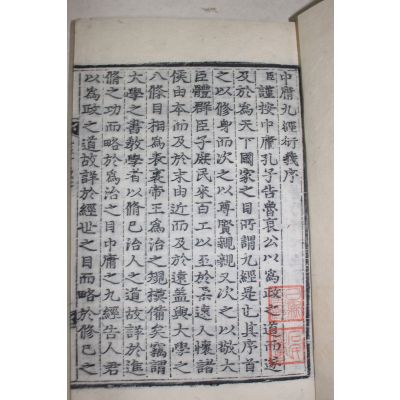 中庸九經衍義序
臣謹按中庸孔子告魯哀公以爲政之道而遂
及於爲天下國家之目所謂九經是也其序首
之以修身而次之以尊賢親親又次之以敬大
臣體群臣子庶民來百工以至於柔遠人懷諸
侯由本而及於末由近而及於遠盖與大學之
八條目相爲表裏帝王爲治之規撫備矣竊謂
大學之書敎學者以脩己治人之道故詳於進
脩之功而略於爲治之目中庸之九經告人君
以爲政之道故詳於經世之目而略於修己之